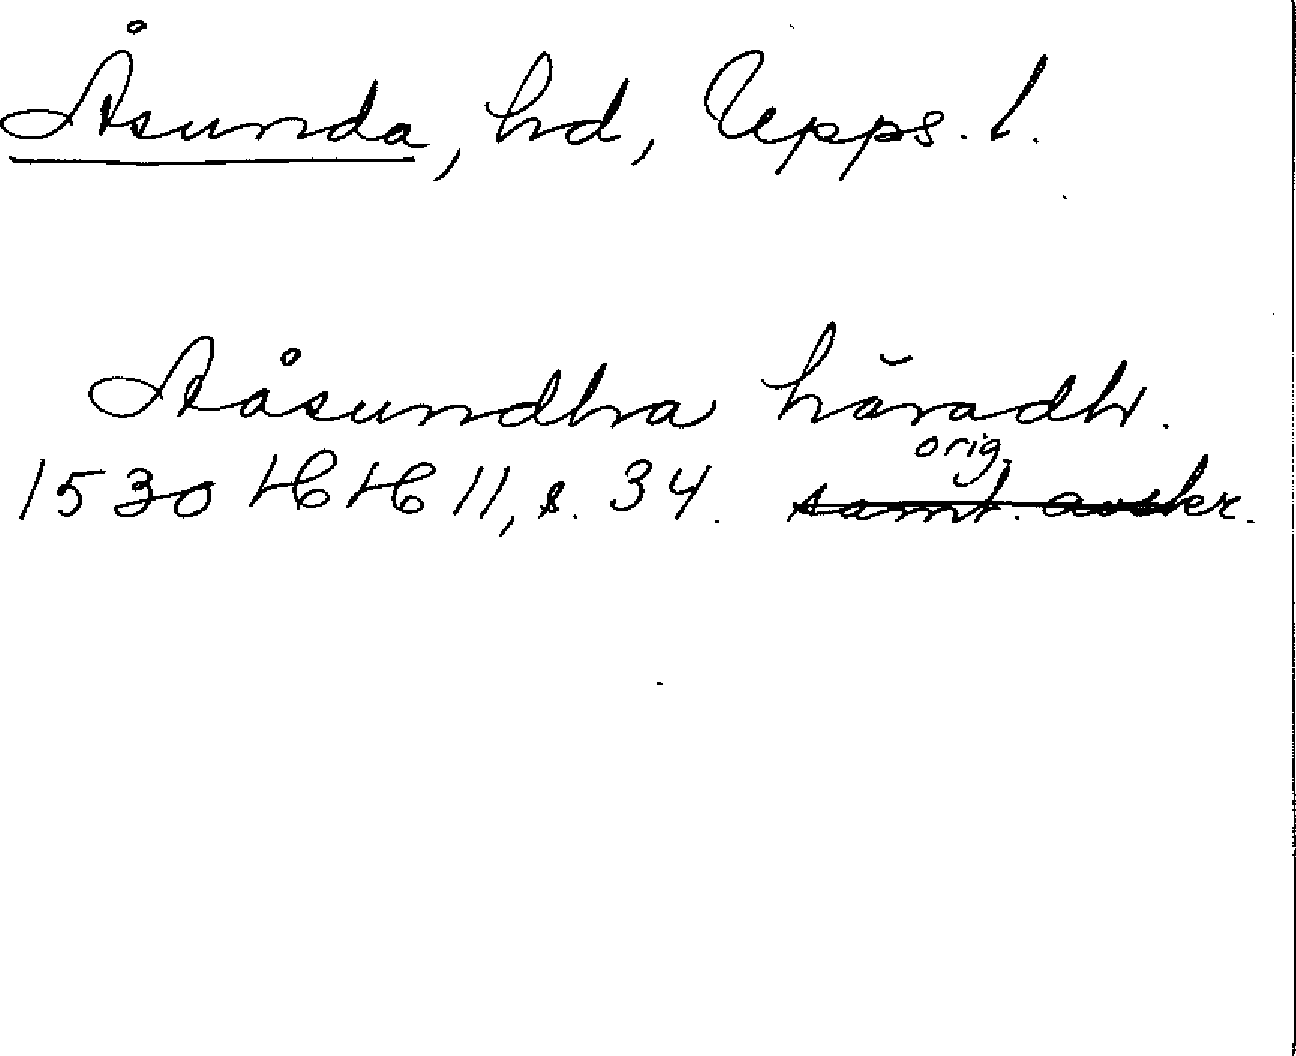 Åsunda, hd, Upps. l.
Aåsundha häradh.
orig.
1530 HH 11, s. 34. samt. avskr.